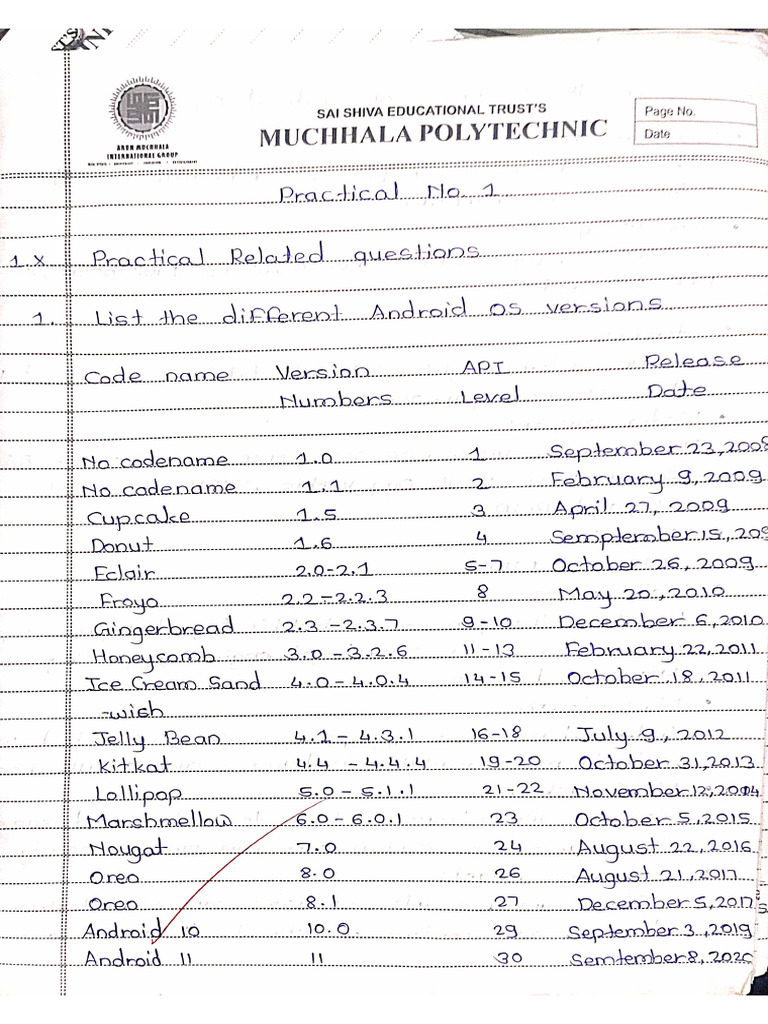 SAI SHIVA EDUCATIONAL TRUST'S
MUCHHALA POLYTECHNIC
Page No.
Date
ARUN MUCHHALA
INTERNATIONAL GROUP
Practical No 1
1.X Practical Related questions
1. List the different Android os versions
Code name Version API Release
Numbers Level Date
No codename 1.0 1 September 23,2008
No codename 1.1 2 February 9,2009
Cupcake 1.5 3 April 27, 2009
Donut 1.6 4 Semptember 15, 200
Eclair 2.0-2.1 5-7 October 26, 2009
Froyo 2.2-2.2.3 8 May 20, 2010
Gingerbread 2.3-2.3.7 9-10 December 6,2010
Honeycomb 3.0-3.2.6 11-13 February 22,2011
Ice Cream Sand 4.0-4.0.4 14-15 October 18,2011
-wish
Jelly Bean 4.1-4.3.1 16-18 July 9, 2012
Kitkat 4.4-4.4.4 19-20 October 31,2013
Lollipop 5.0-5.1.1 21-22 November 12,2014
Marshmellow 6.0-6.0.1 23 October 5,2015
Nougat 7.0 24 August 22,2016
Oreo 8.0 26 August 21,2017
Oreo 8.1 27 December 5,2017
Android 10 10.0 29 September 3,2019
Android 11 11 30 Semtember 8,2020